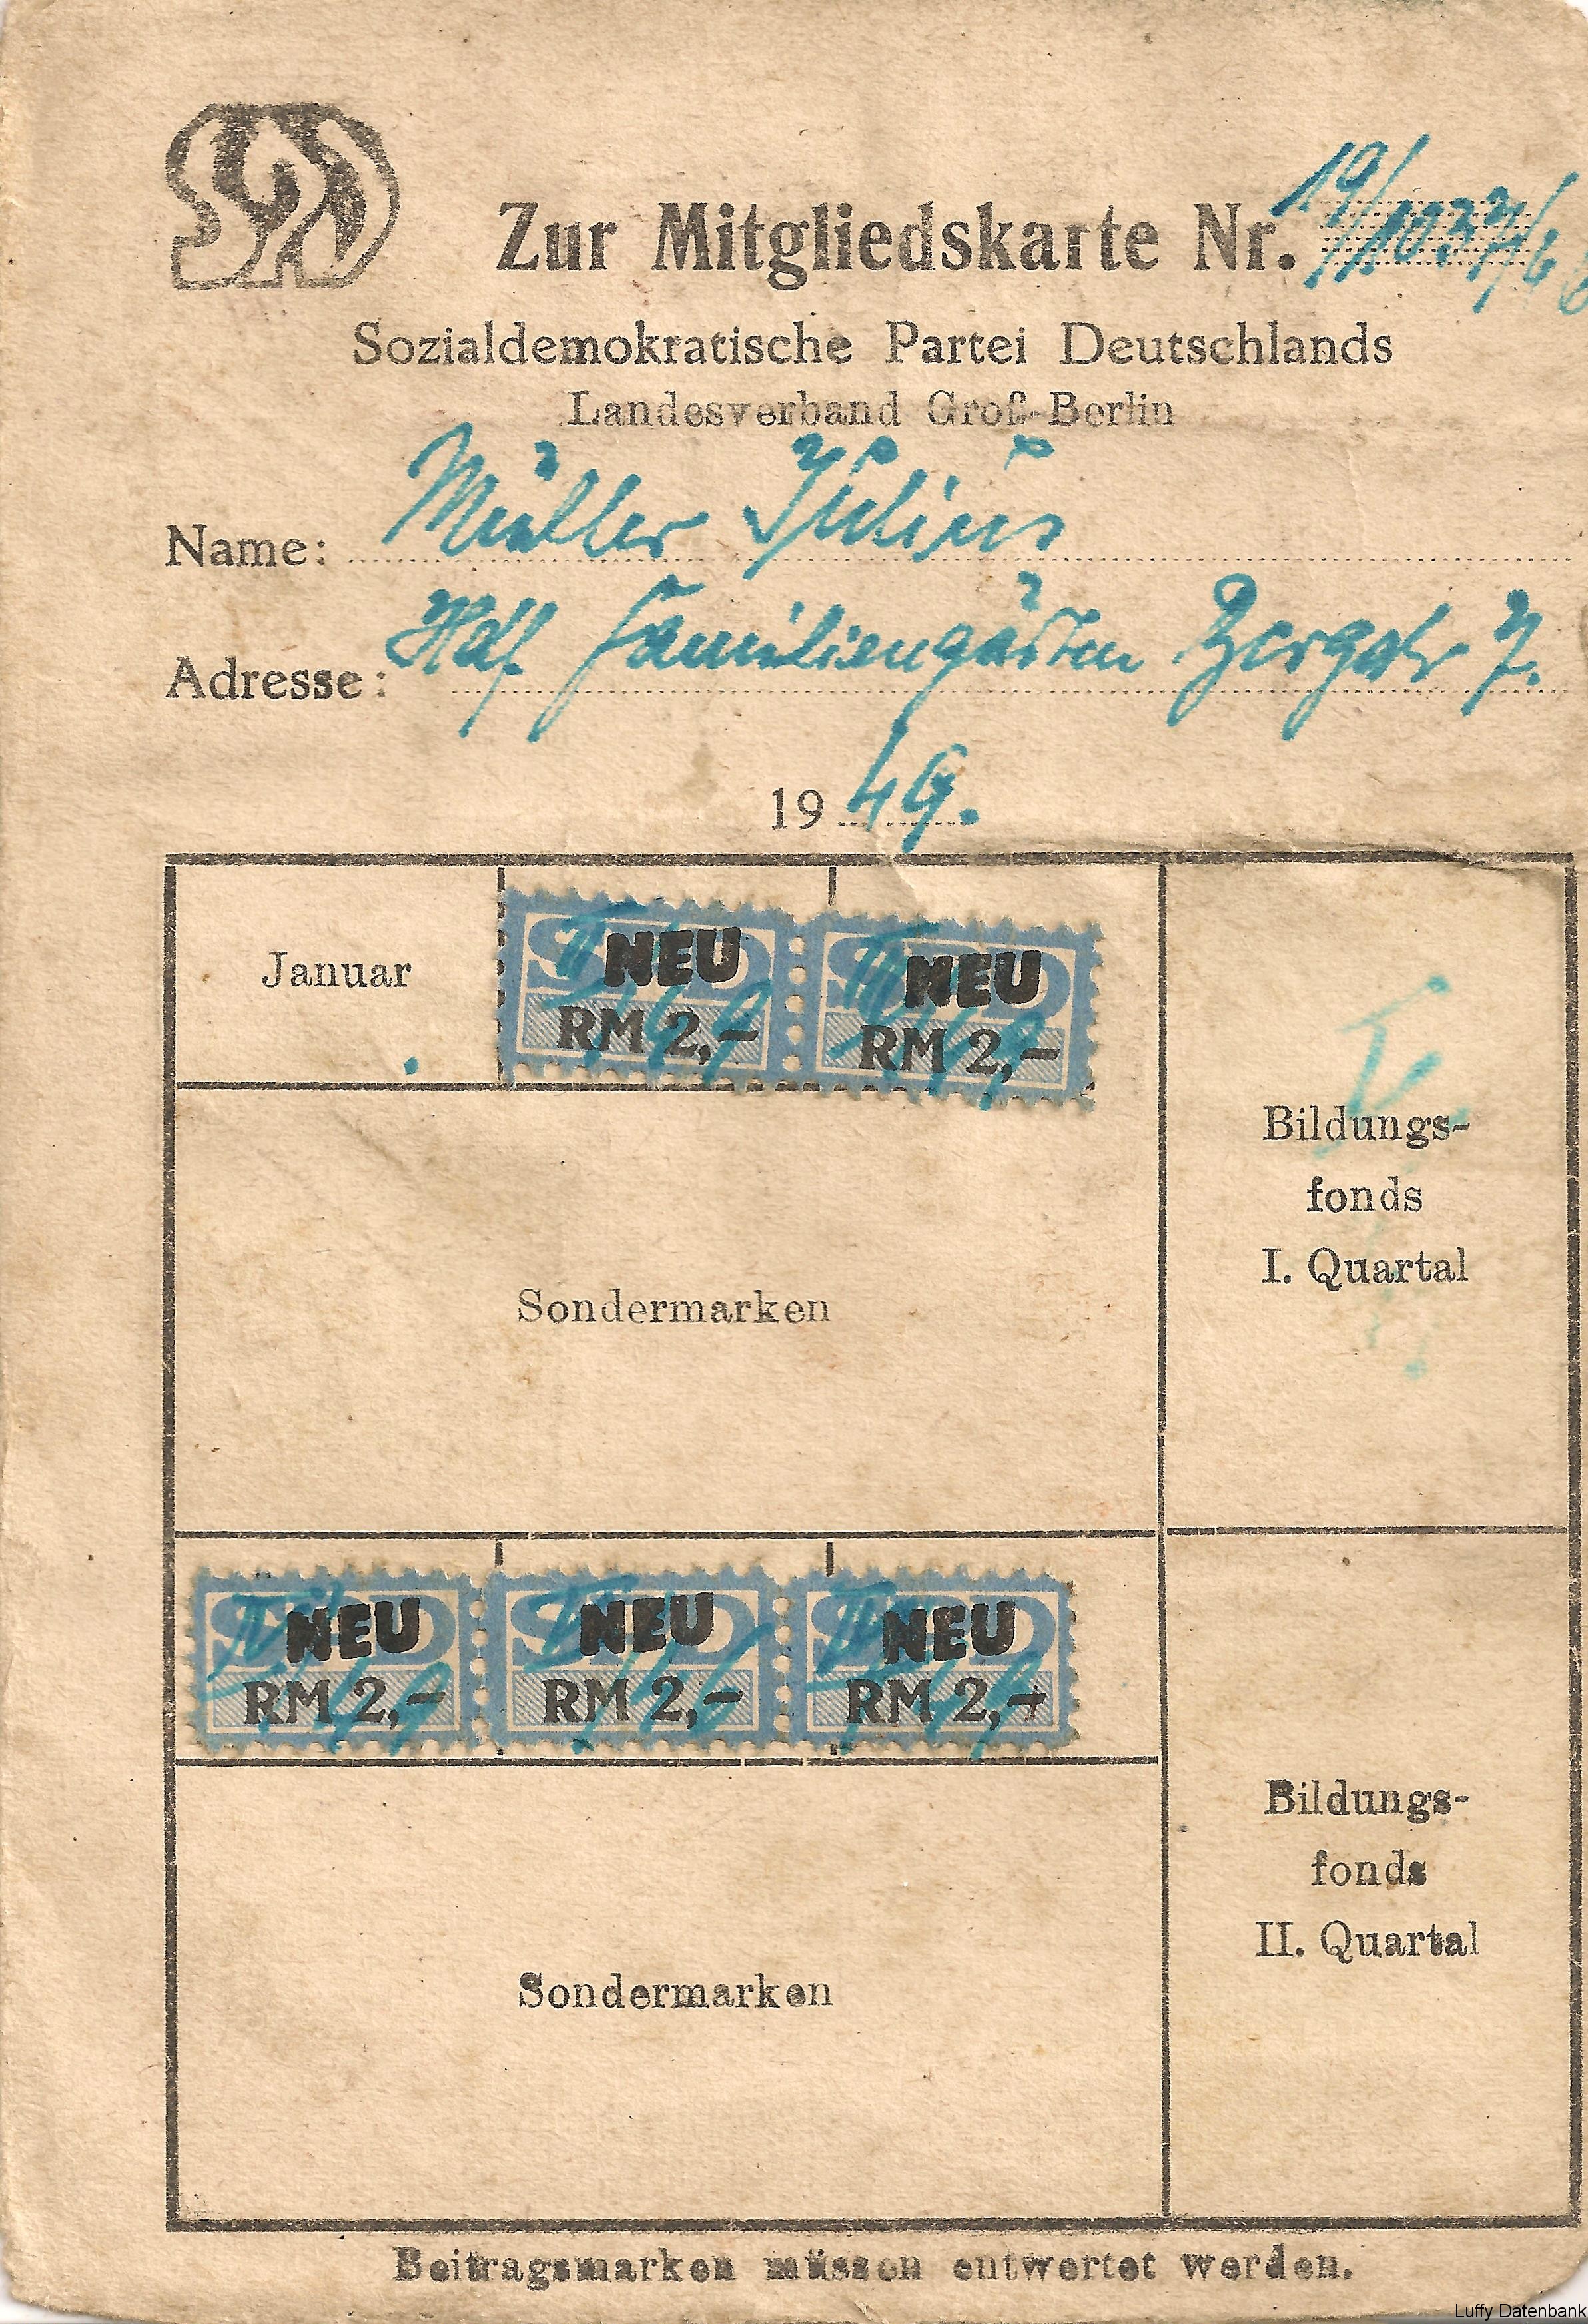 SPD
Zur Mitgliedskarte Nr. 19/
Sozialdemokratische Partei Deutschlands
Landesverband Groß-Berlin
Name: Müller Julius
Adresse: Hdf. Familiengärten Bergstr 7.
19 49.
Januar
NEU NEU
RM 2,– RM 2,–
Bildungs-
fonds
I. Quartal
Sondermarken
NEU NEU NEU
RM 2,– RM 2,– RM 2,–
Bildungs-
fonds
II. Quartal
Sondermarken
Beitragsmarken müssen entwertet werden.
Luffy Datenbank